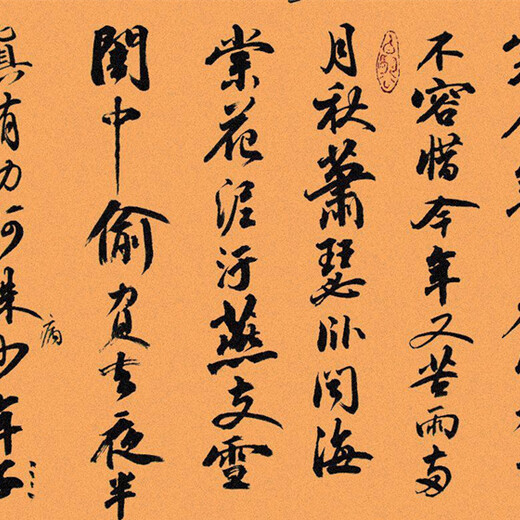 不容惜今年又苦雨兩
月秋蕭瑟卧聞海
棠花泥汙燕支雪
闇中偷負去夜半
真有力何殊病少年子